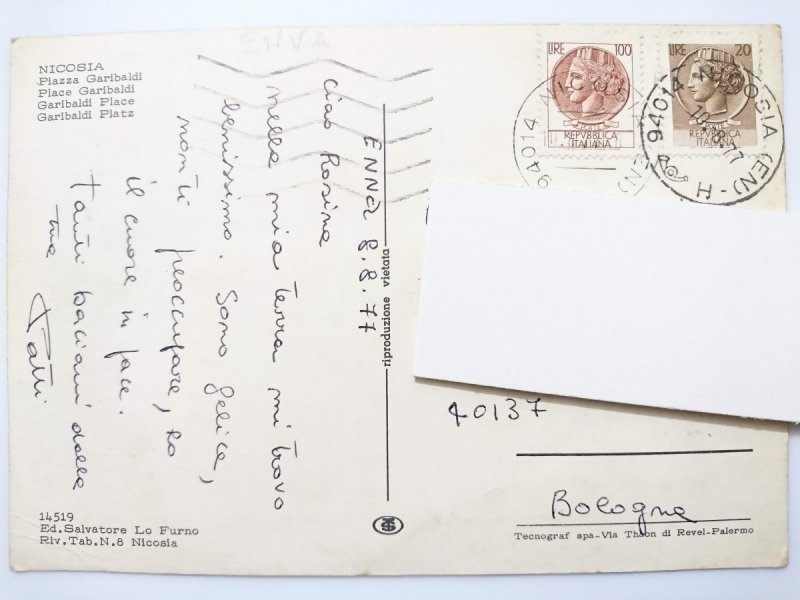 NICOSIA
Piazza Garibaldi
Place Garibaldi
Garibaldi Place
Garibaldi Platz
ENNA 8.8.77
Ciao Rosina
nella mia terra mi trovo
benissimo. Sono felice,
non ti preoccupare, ho
il cuore in pace.
Tanti baciani dalla
tua
14519
Ed.Salvatore Lo Furno
Riv.Tab.N.8 Nicosia
riproduzione vietata
LIRE 100
REPVBBLICA
ITALIANA
LIRE 20
REPVBBLICA
ITALIANA
94014 NICOSIA (EN)
94014 NICOSIA (EN) - H
40137
Bologna
Tecnograf spa-Via Thaon di Revel-Palermo